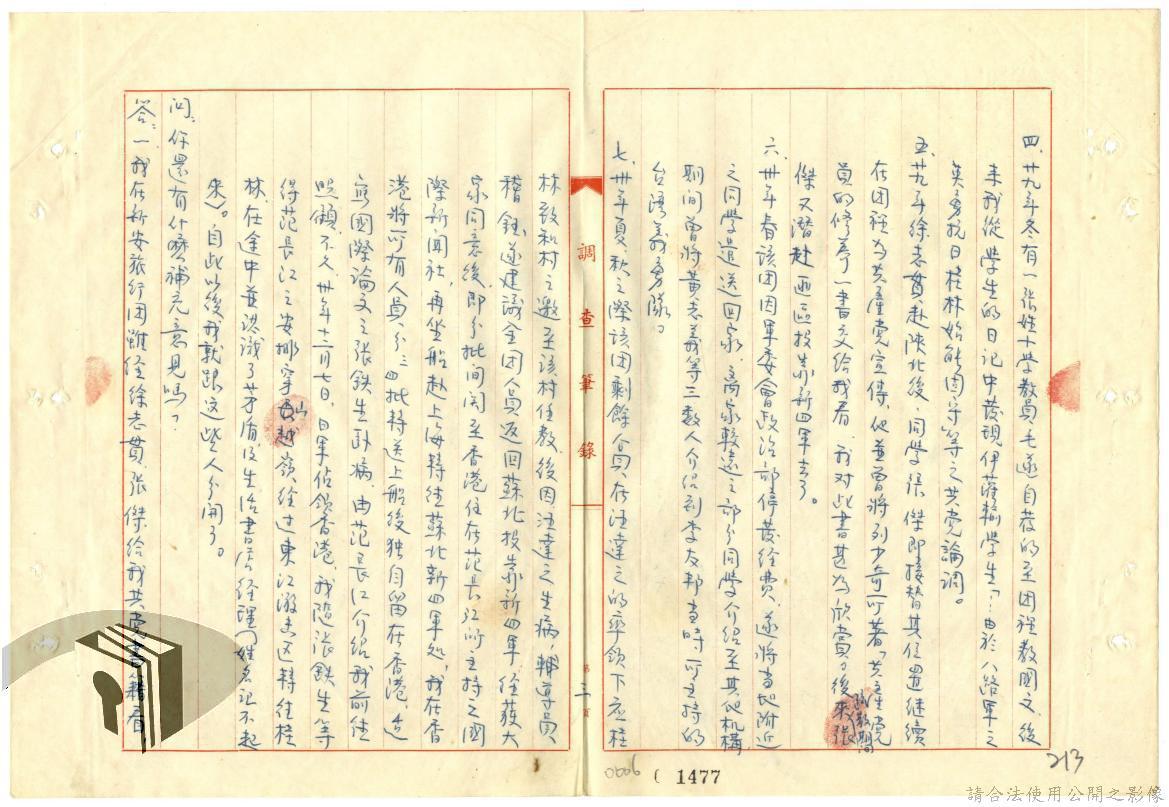 四、廿九年冬有一張姓小學教員毛遂自荐的至团裡教國文、後
來我從學生的日記中發現伊薩輸學生「由於八路軍之
英勇抗日桂林始能固守」等之共党論調。
五、廿九年徐志貫赴陝北後，同學張傑即接替其位置継續
在团裡为共產党宣傳，他並曾將刘少奇所著「共產党
員的修養」一書交给我看，我对此書甚为欣賞。後來張
傑又潛赴匪區投奔新四軍去了。
六、卅年春该团因軍委會政治部停發经費，遂將当地附近
之同學遣送回家，离家較遠之部分同學介绍至其他機構
期间曾將黃志義等三數人介绍到李友邦当時所主持的
台湾義勇隊。
七、卅年夏秋之際该团剩餘人員，在汪達之的率領下应桂
林敦和村之邀至该村任教，後因汪達之生病，輔導員
稽鈺遂建議全团人員返回蘇北投奔新四軍，经获大
家同意後即分批间関至香港住在范長江所主持之國
際新闻社，再坐船赴上海轉往蘇北新四軍处，我在香
港將所有人員，分三四批轉送上船後独自留在香港，
寫國際論文之張鉄生卧病，由范長江介绍我前往
照顧，不久，卅年十二月七日，日軍佔領香港，我隨張鉄生等
得范長江之安排穿山越嶺，经过東江游击区轉往桂
林，在途中並認識了茅盾及生活書店经理（姓名记不起
來）。自此以後我就跟这些人分開了。
问：你還有什麽補充意見吗？
答：一、我在新安旅行团雖经徐志貫、張傑给我共党書籍看
調查筆錄
第三頁
0006
1477
213
請合法使用公開之影像